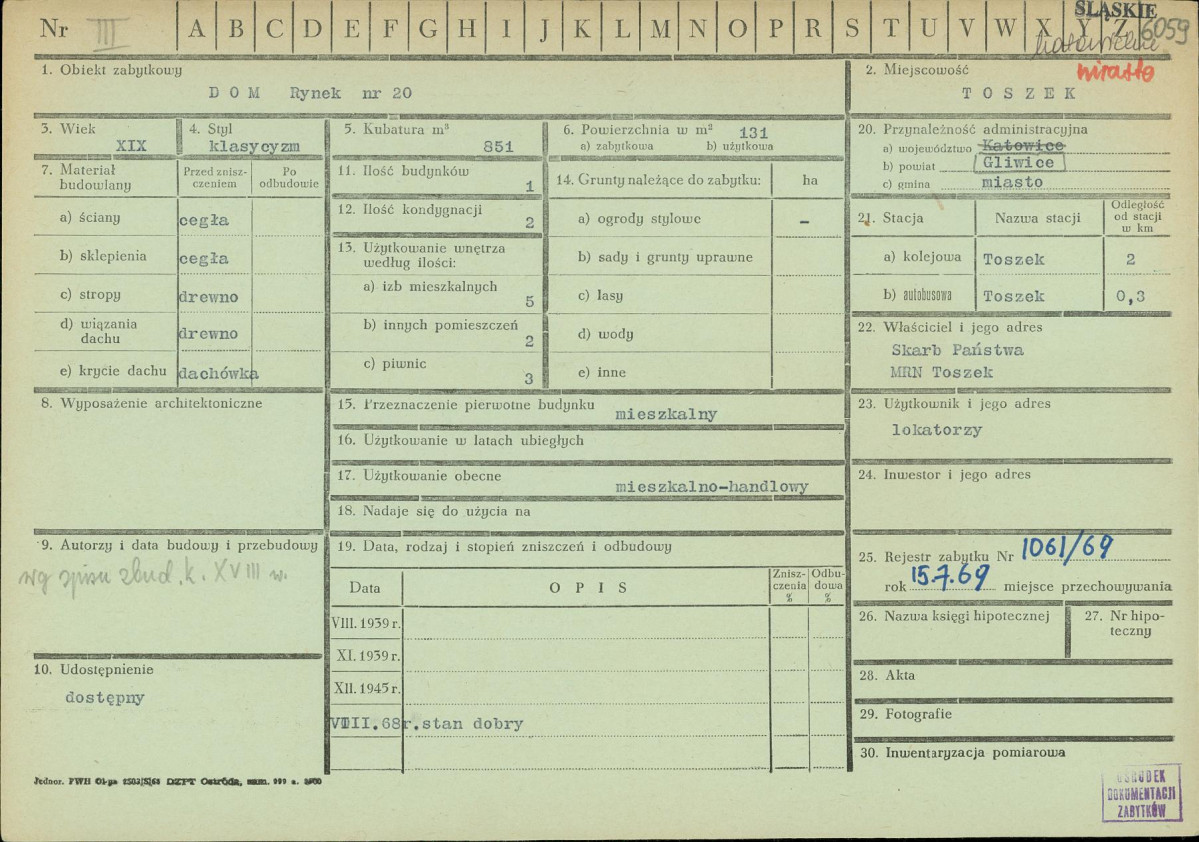 Nr III A B C D E F G H I J K L M N O P R S T U V W X Y Z
ŚLĄSKIE
6059
miasto
1. Obiekt zabytkowy
D O M Rynek nr 20
2. Miejscowość
T O S Z E K
3. Wiek
XIX
4. Styl
klasycyzm
5. Kubatura m³
851
6. Powierzchnia w m² 131
a) zabytkowa b) użytkowa
20. Przynależność administracyjna
a) województwo Katowice
b) powiat Gliwice
c) gmina miasto
7. Materiał budowlany
Przed zniszczeniem
Po odbudowie
a) ściany cegła
b) sklepienia cegła
c) stropy drewno
d) wiązania dachu drewno
e) krycie dachu dachówka
11. Ilość budynków
1
12. Ilość kondygnacji
2
13. Użytkowanie wnętrza według ilości:
a) izb mieszkalnych
5
b) innych pomieszczeń
2
c) piwnic
3
14. Grunty należące do zabytku: ha
a) ogrody stylowe –
b) sady i grunty uprawne
c) lasy
d) wody
e) inne
21. Stacja
Nazwa stacji
Odległość od stacji w km
a) kolejowa Toszek 2
b) autobusowa Toszek 0,3
22. Właściciel i jego adres
Skarb Państwa
MRN Toszek
8. Wyposażenie architektoniczne
15. Przeznaczenie pierwotne budynku
mieszkalny
16. Użytkowanie w latach ubiegłych
17. Użytkowanie obecne
mieszkalno-handlowy
18. Nadaje się do użycia na
23. Użytkownik i jego adres
lokatorzy
24. Inwestor i jego adres
9. Autorzy i data budowy i przebudowy
wg spisu zbud. k. XVIII w.
10. Udostępnienie
dostępny
19. Data, rodzaj i stopień zniszczeń i odbudowy
Data
O P I S
Zniszczenia %
Odbudowa %
VIII. 1939 r.
XI. 1939 r.
XII. 1945 r.
VIII.68r.stan dobry
25. Rejestr zabytku Nr 1061/69
rok 15.7.69 miejsce przechowywania
26. Nazwa księgi hipotecznej
27. Nr hipoteczny
28. Akta
29. Fotografie
30. Inwentaryzacja pomiarowa
OŚRODEK
DOKUMENTACJI
ZABYTKÓW